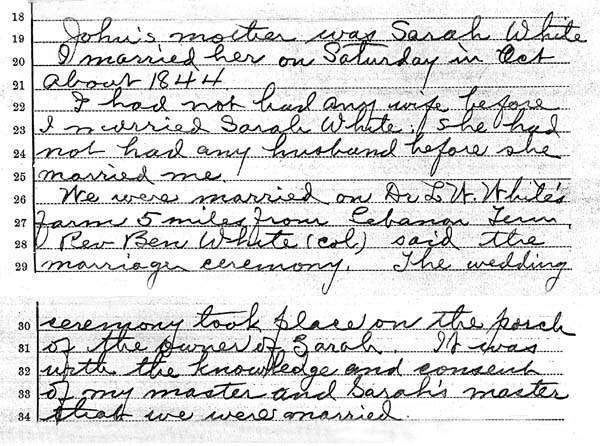 18
19 John's mother was Sarah White
20 I married her on Saturday in Oct
21 about 1844
22 I had not had any wife before
23 I married Sarah White. She had
24 not had any husband before she
25 married me.
26 We were married on Dr L. W. White's
27 farm 5 miles from Lebanon Tenn.
28 Rev Ben White (col.) said the
29 marriage ceremony. The wedding
30 ceremony took place on the porch
31 of the owner of Sarah It was
32 with the knowledge and consent
33 of my master and Sarah's master
34 that we were married.